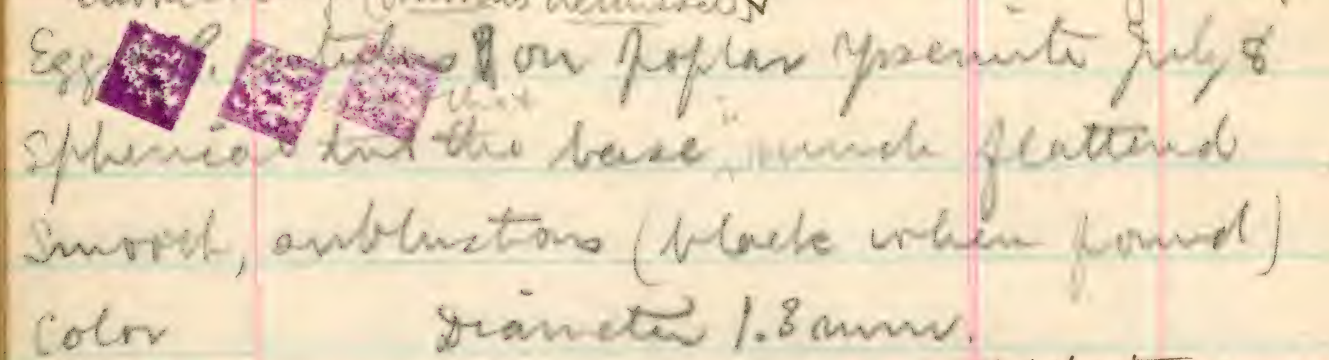 Egg P. on poplar Yosemite July 8
Spherical but the base much flattend
Smooth, sublustrous (black when found)
Color Diameter 1.8 mm.